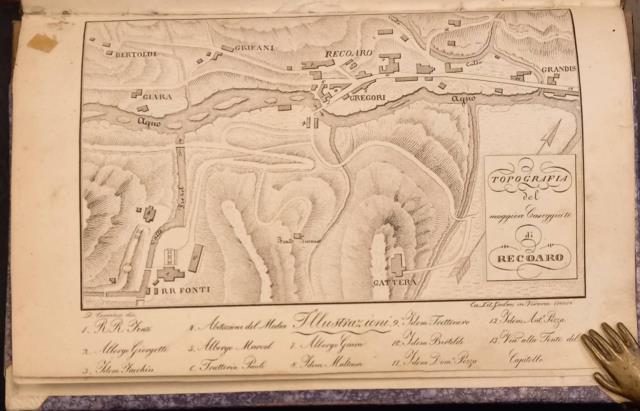 BERTOLDI
GRIFANI
RECOARO
GRANDIS
GIARA
GREGORI
Agno
Agno
TOPOGRAFIA
del
maggior Caseggiato
di
RECOARO
Fonte
GATTERA
RR FONTI
in Verona
Illustrazioni
1. R.R. Fonti
2. Albergo Giorgetti
3. Idem
4. Abitazione del Medico
5. Albergo
6. Trattoria Paoli
7. Albergo Giara
8. Idem
9. Idem Trettenero
10. Idem Bertoldi
11. Idem Dom. Pozza
12. Idem Ant. Pozza
13. Via alla Fonte del
Capitello